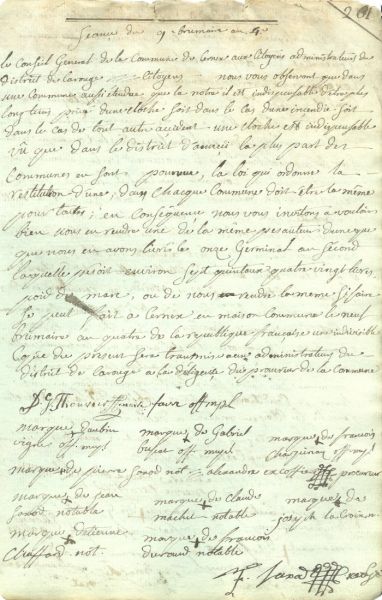 201
Seance du 9 brumaire an 4e
le Conseil General de la Commune de Cernex aux Citoyens administrateurs du
District de Carouge Citoyens nous vous observont que dans
une Commune aussi etendue que la notre il est indispensable
longtems une cloche soit dans le cas d'une incendie soit
dans le cas de tout autre accident une cloche est indispensable
vû que dans le district la plus part des
Communes en sont pourvue, la loi qui ordonne la
restitution d'une, dans chaque Commune doit être la même
pour toutes; en conséquence nous vous invitons a vouloir
bien nous en rendre une de la même pesanteur d'une que
que nous en avons livré le onze Germinal an Second
laquelle pesoit environ sept quintaux quatre vingt livres
poid de marc, ou de nous rendre la meme si faire
se peut fait a Cernex en maison Commune le neuf
brumaire an quatre de la republique française une indivisible
Copie du present sera transmise aux administrateurs du
district de Carouge a la diligence du procureur de la Commune
favre off mpl
marque d'aubin marque de Gabriel marque de francois
off. mpl off. mpl off mpl
marque de pierre not. alexandre procureur
marque de jean marque de Claude marque de
notable notable joseph
marque d'etienne marque de francois
Chaffard not. durand notable